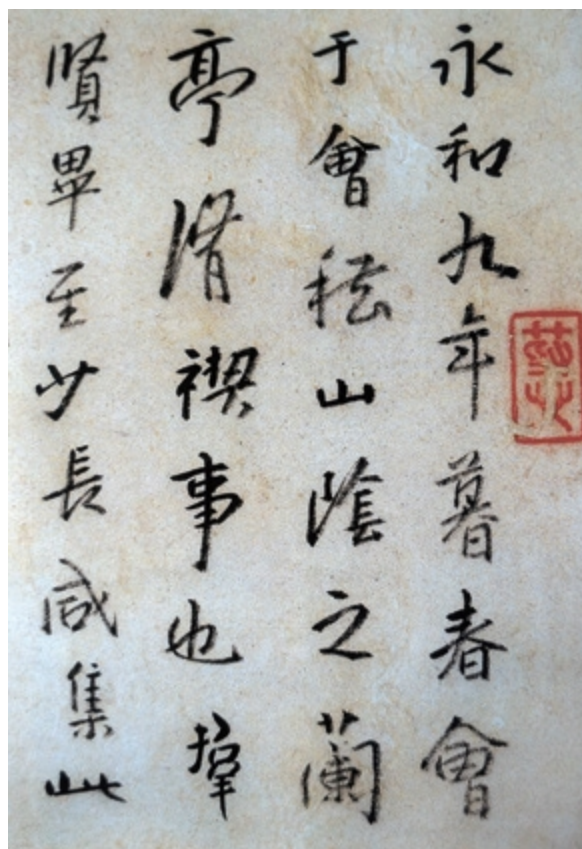 永和九年暮春會
于會稽山陰之蘭
亭脩禊事也羣
賢畢至少長咸集此